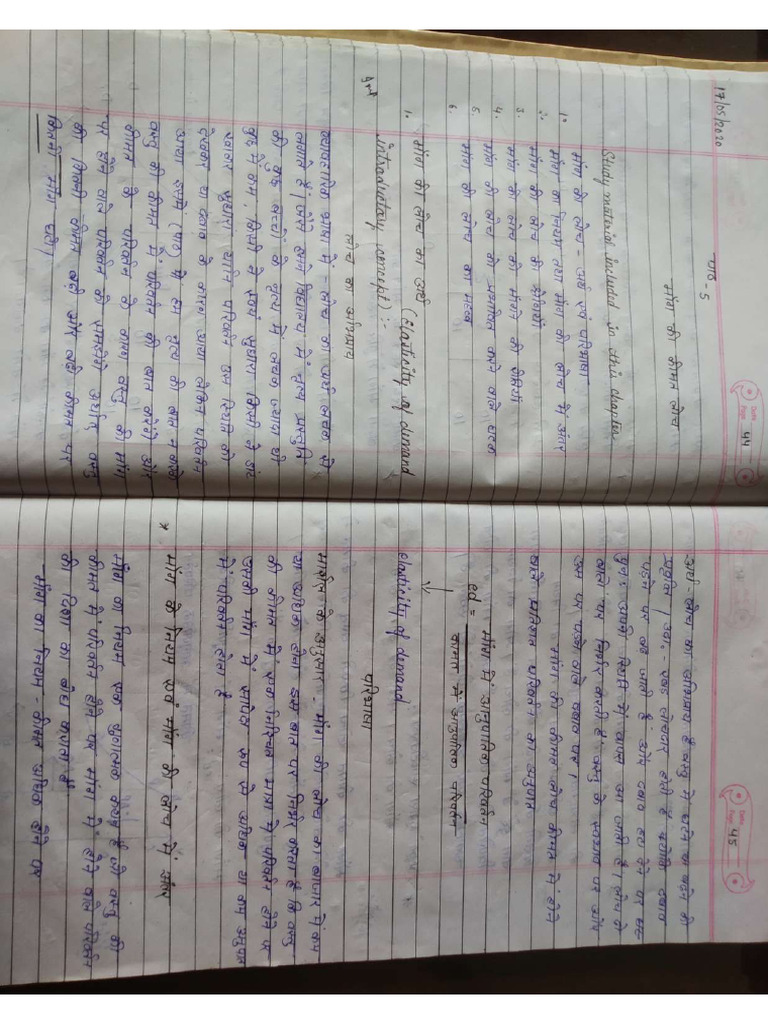 17/05/2020
Date:
Page: 44
पाठ - 5
माँग की कीमत लोच
Study material included in this chapter
माँग की लोच - अर्थ एवं परिभाषा
1. माँग का नियम तथा माँग की लोच में अंतर
2. माँग की लोच की श्रेणियाँ
3. माँग की लोच को मापने की विधियाँ
4. माँग की लोच को प्रभावित करने वाले घटक
5. माँग की लोच का महत्व
6.
1. माँग की लोच का अर्थ (Elasticity of demand
introductory concept) :-
लोच का अभिप्राय
व्यावहारिक भाषा में - लोच का अर्थ लचक से
लगाते हैं, जैसे हमने विद्यालय में नृत्य प्रस्तुति
की कुछ बच्चों के नृत्य में लचक ज्यादा थी
कुछ में कम, किसी ने स्वयं सुधारा किसी ने डांट
खाकर सुधारा यानि परिवर्तन उस स्थिति को
देखकर या दबाव के कारण आया लेकिन परिवर्तन
आया इसमें (पाठ) में हम नृत्य की बात न करके
वस्तु की कीमत में परिवर्तन की बात करेंगे और
कीमत के परिवर्तन के कारण वस्तु की माँग
पर होने वाले परिवर्तन को समझेंगे अर्थात् वस्तु
की कितनी कीमत बढ़ी और बढ़ी कीमत पर
कितनी माँग घटी।
Date:
Page: 45
अर्थ - लोच का अभिप्राय है वस्तु में घटने व बढ़ने की
प्रवृत्ति। उदा. - रबड़ लोचदार होती है क्योंकि दबाव
पड़ने पर बढ़ जाती है और दबाव हटा देने पर वह
पुनः अपनी स्थिति में वापस आ जाती है। लोच दो
बातों पर निर्भर करती है वस्तु के स्वभाव पर और
उस पर पड़ने वाले दबाव पर।
माँग की कीमत लोच कीमत में होने
वाले प्रतिशत परिवर्तन का अनुपात
ed = माँग में आनुपातिक परिवर्तन
कीमत में आनुपातिक परिवर्तन
elasticity of demand
परिभाषा
मार्शल के अनुसार - माँग की लोच का बाजार में कम
या अधिक होना इस बात पर निर्भर करता है कि वस्तु
की कीमत में एक निश्चित मात्रा में परिवर्तन होने पर
उसकी माँग में सापेक्ष रूप से अधिक या कम अनुपात
में परिवर्तन होता है
* माँग के नियम एवं माँग की लोच में अंतर
माँग का नियम एक गुणात्मक कथन है जो वस्तु की
कीमत में परिवर्तन होने पर माँग में होने वाले परिवर्तन
की दिशा का बोध कराता है
माँग का नियम - कीमत अधिक होने पर